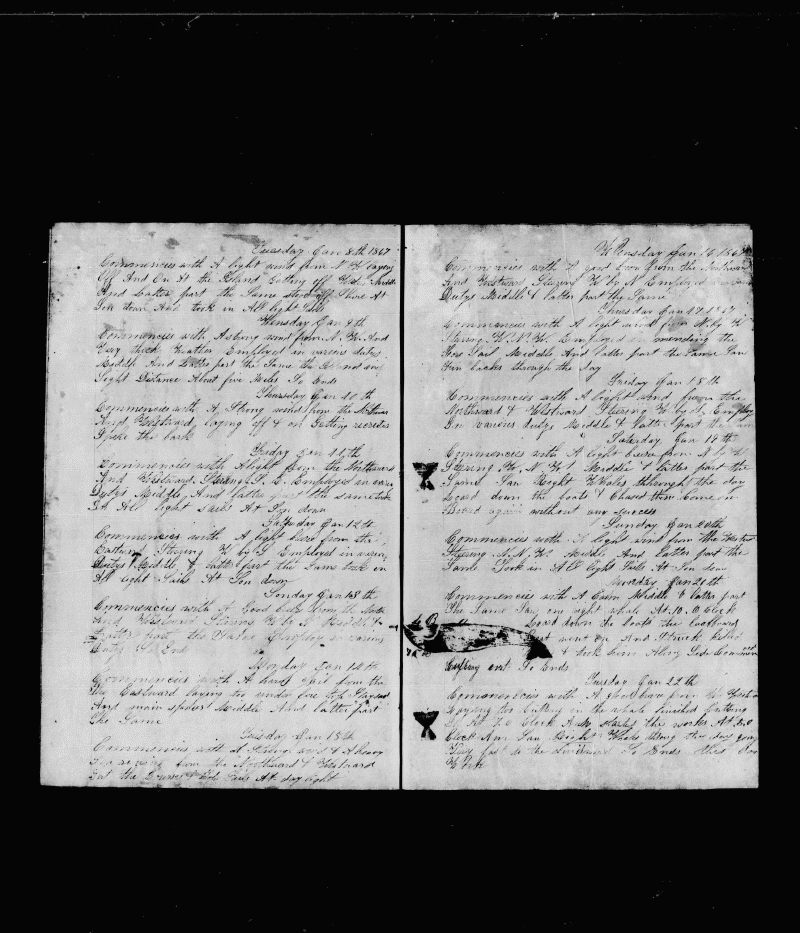 Tuesday Jan 8th 1867
Commences with A light wind from N W laying
Off And On At the Island Getting off Middle
And Latter part the Same Stood off Shore At
Son down And took in All light Sails
Wensday Jan 9th
Commences with A Strong wind from N. W. And
Very thick Weather Employed in various dutys
Middle And Latter part the Same the Island in
Sight Distance About five Miles So Ends
Thursday Jan 10th
Commences with A Strong wind from the Northward
And Westward, laying off & on Getting recruits
Spoke the bark
Friday Jan 11th
Commences with A light from the Northward
And Westward Stearing S. E. Employed in various
Dutys Middle, And latter part the Same took
In All light Sails At Son down
Saturday Jan 12th
Commences with A light breeze from the
Eastward Stearing W by S Employed in various
Dutys Middle & latter part the Same took in
All light Sails At Son down
Sonday Jan 13th
Commences with A Good breeze from the North
And Westward Stearing W by S Middle &
Latter part the Same Employed in various
Dutys So Ends
Monday Jan 14th
Commences with A heavy gail from the
Eastward laying too under fore top Staysail
And main spencer Middle And latter part
the Same
Tuesday Jan 15th
Commences with A Strong wind & A heavy
Sea running from the Northward & Westward
Put the Sails At day light
Wensday Jan 16 1867
Commences with A good breeze from the Northward
And Westward Stearing W by N Employed in various
Dutys Middle & latter part the Same
Thursday Jan 17 1867
Commences with A light wind from N. by W
Stearing W. N. W. Employed in mending the
Fore Sail Middle And latter part the Same Saw
Fin backs through the day
Friday Jan 18th
Commences with A light wind from the
Northward & Westward Stearing W by N Employed
In various dutys Middle & latter part the Same
Saturday Jan 19th
Commences with A light breeze from N by W
Stearing W. N. W. Middle & latter part the
Same Saw Right Whales through the day
Loard down the boats & Chased them Came on
Board again without any success
Sonday Jan 20th
Commences with A light wind from the Westward
Stearing N. N. W. Middle And latter part the
Same Took in All light Sails At Son down
Monday Jan 21st
Commences with A Calm Middle & latter part
The Same Saw one right whale At 10. O Clock
Loard down the boats the Larboard
Boat went on And Struck killed
& took him Along Side Commenced
Cutting in So Ends
Tuesday Jan 22th
Commences with A from the
laying too Cutting in the whale finished Cutting
At 7. O Clock A.M. started the works At 8 O
Clock A.m. Saw Right Whales Along the day going
Very fast to the So Ends this day